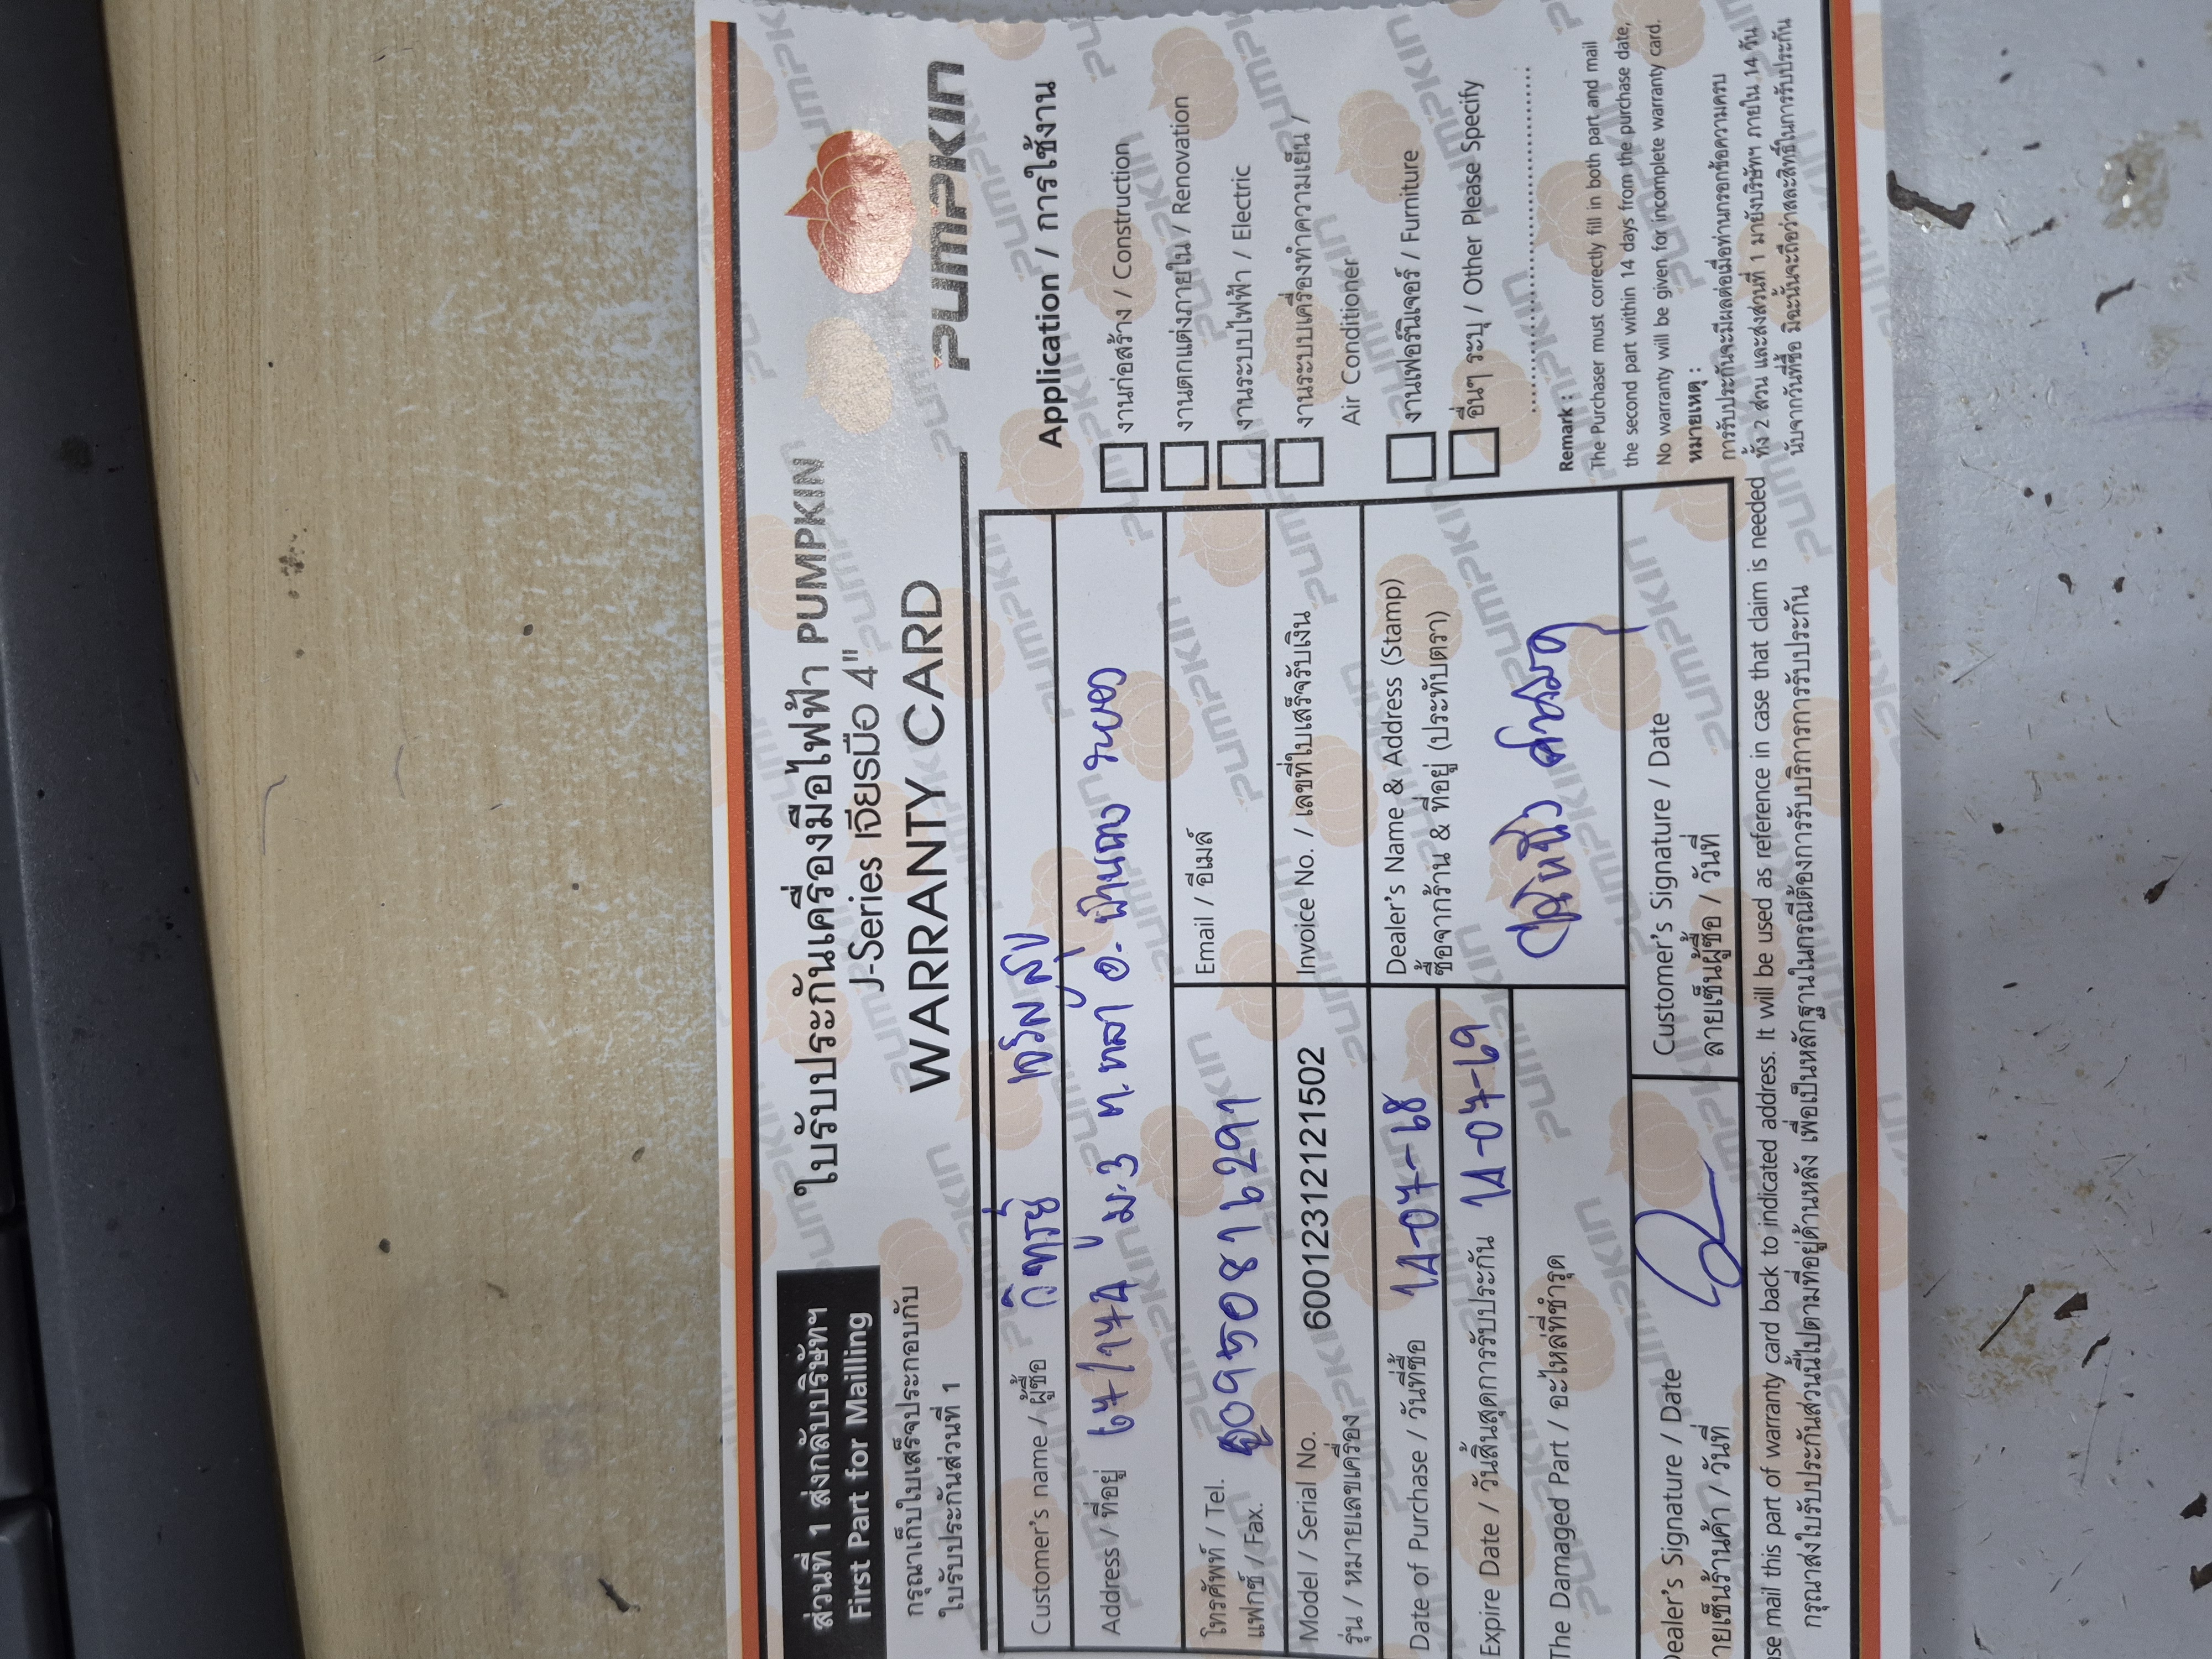 ส่วนที่ 1 ส่งกลับบริษัทฯ
First Part for Mailling
กรุณาเก็บใบเสร็จประกอบกับ
ใบรับประกันส่วนที่ 1
ใบรับประกันเครื่องมือไฟฟ้า PUMPKIN
J-Series เจียรมือ 4"
WARRANTY CARD
PUMPKIN
Customer's name / ผู้ซื้อ
Address / ที่อยู่ 67/174 ม.3 ต.
โทรศัพท์ / Tel. 0950816291
แฟกซ์ / Fax.
Email / อีเมล์
Model / Serial No. 6001231212121502
รุ่น / หมายเลขเครื่อง
Invoice No. / เลขที่ใบเสร็จรับเงิน
Date of Purchase / วันที่ซื้อ 14-07-68
Expire Date / วันสิ้นสุดการรับประกัน 14-07-69
The Damaged Part / อะไหล่ที่ชำรุด
Dealer's Name & Address (Stamp)
ซื้อจากร้าน & ที่อยู่ (ประทับตรา)
Dealer's Signature / Date
ลายเซ็นร้านค้า / วันที่
Customer's Signature / Date
ลายเซ็นผู้ซื้อ / วันที่
Application / การใช้งาน
งานก่อสร้าง / Construction
งานตกแต่งภายใน / Renovation
งานระบบไฟฟ้า / Electric
งานระบบเครื่องทำความเย็น /
Air Conditioner
งานเฟอร์นิเจอร์ / Furniture
อื่นๆ ระบุ / Other Please Specify
Remark :
The Purchaser must correctly fill in both part and mail
the second part within 14 days from the purchase date,
No warranty will be given for incomplete warranty card.
หมายเหตุ :
การรับประกันจะมีผลต่อเมื่อท่านกรอกข้อความครบ
ทั้ง 2 ส่วน และส่งส่วนที่ 1 มายังบริษัทฯ ภายใน 14 วัน
นับจากวันที่ซื้อ มิฉะนั้นจะถือว่าสละสิทธิ์ในการรับประกัน
se mail this part of warranty card back to indicated address. It will be used as reference in case that claim is needed
กรุณาส่งใบรับประกันส่วนนี้ไปตามที่อยู่ด้านหลัง เพื่อเป็นหลักฐานในกรณีต้องการรับบริการการรับประกัน